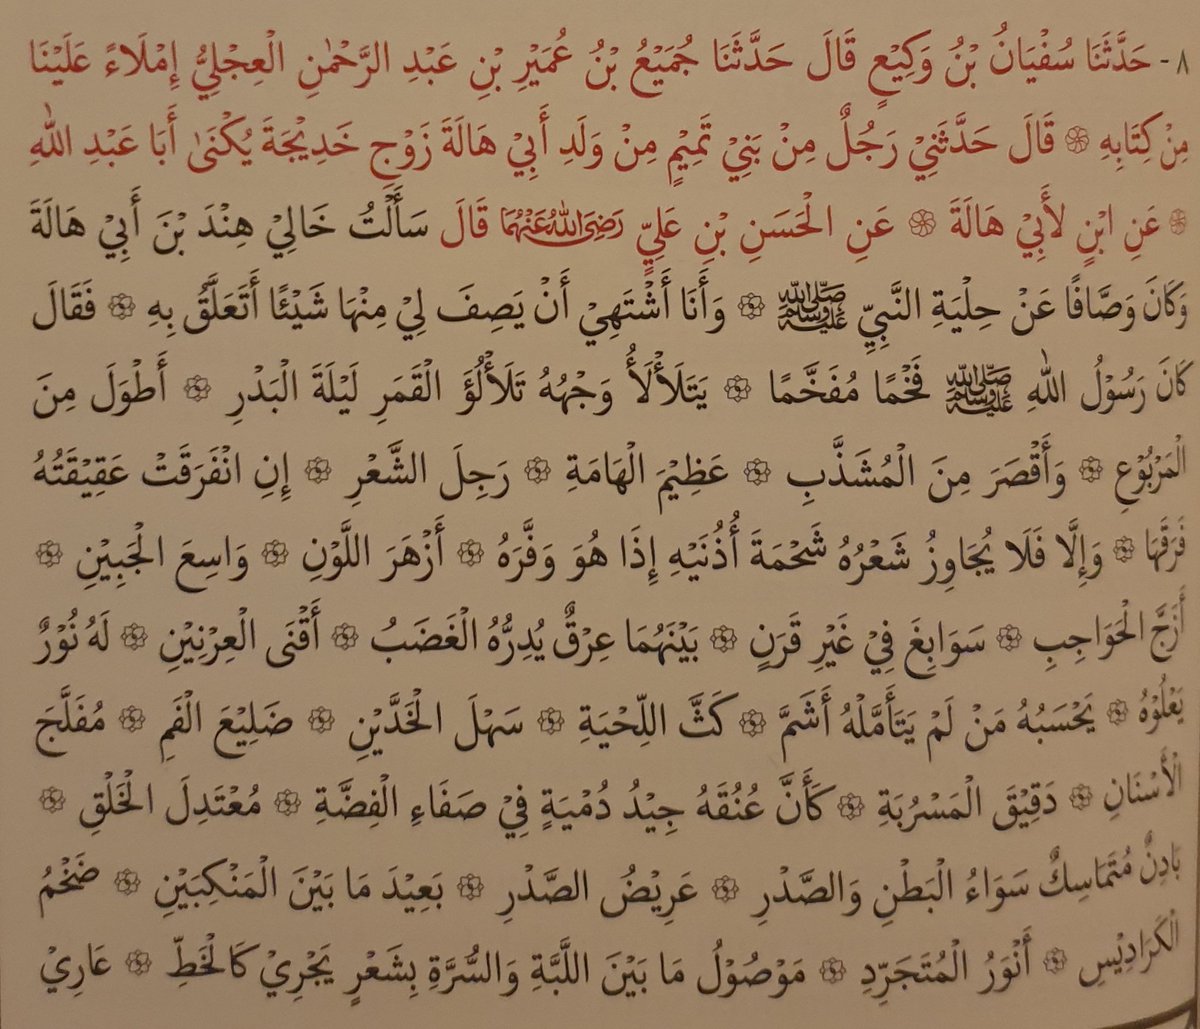 ٨- حَدَّثَنَا سُفْيَانُ بْنُ وَكِيْعٍ قَالَ حَدَّثَنَا جُمَيْعُ بْنُ عُمَيْرِ بْنِ عَبْدِ الرَّحْمٰنِ الْعِجْلِيُّ إِمْلَاءً عَلَيْنَا
مِنْ كِتَابِهِ ۞ قَالَ حَدَّثَنِيْ رَجُلٌ مِنْ بَنِيْ تَمِيْمٍ مِنْ وَلَدِ أَبِيْ هَالَةَ زَوْجِ خَدِيْجَةَ يُكْنَىٰ أَبَا عَبْدِ اللهِ
۞ عَنِ ابْنٍ لأَبِيْ هَالَةَ ۞ عَنِ الْحَسَنِ بْنِ عَلِيٍّ رَضِيَ اللهُ عَنْهُمَا قَالَ سَأَلْتُ خَالِيْ هِنْدَ بْنَ أَبِيْ هَالَةَ
وَكَانَ وَصَّافًا عَنْ حِلْيَةِ النَّبِيِّ ﷺ ۞ وَأَنَا أَشْتَهِيْ أَنْ يَصِفَ لِيْ مِنْهَا شَيْئًا أَتَعَلَّقُ بِهِ ۞ فَقَالَ
كَانَ رَسُوْلُ اللهِ ﷺ فَخْمًا مُفَخَّمًا ۞ يَتَلَأْلَأُ وَجْهُهُ تَلَأْلُؤَ الْقَمَرِ لَيْلَةَ الْبَدْرِ ۞ أَطْوَلَ مِنَ
الْمَرْبُوْعِ ۞ وَأَقْصَرَ مِنَ الْمُشَذَّبِ ۞ عَظِيْمَ الْهَامَةِ ۞ رَجِلَ الشَّعْرِ ۞ إِنِ انْفَرَقَتْ عَقِيْقَتُهُ
فَرَقَهَا ۞ وَإِلَّا فَلَا يُجَاوِزُ شَعْرُهُ شَحْمَةَ أُذُنَيْهِ إِذَا هُوَ وَفَّرَهُ ۞ أَزْهَرَ اللَّوْنِ ۞ وَاسِعَ الْجَبِيْنِ ۞
أَزَجَّ الْحَوَاجِبِ ۞ سَوَابِغَ فِيْ غَيْرِ قَرَنٍ ۞ بَيْنَهُمَا عِرْقٌ يُدِرُّهُ الْغَضَبُ ۞ أَقْنَى الْعِرْنِيْنِ ۞ لَهُ نُوْرٌ
يَعْلُوْهُ ۞ يَحْسَبُهُ مَنْ لَمْ يَتَأَمَّلْهُ أَشَمَّ ۞ كَثَّ اللِّحْيَةِ ۞ سَهْلَ الْخَدَّيْنِ ۞ ضَلِيْعَ الْفَمِ ۞ مُفَلَّجَ
الْأَسْنَانِ ۞ دَقِيْقَ الْمَسْرُبَةِ ۞ كَأَنَّ عُنُقَهُ جِيْدُ دُمْيَةٍ فِيْ صَفَاءِ الْفِضَّةِ ۞ مُعْتَدِلَ الْخَلْقِ ۞
بَادِنٌ مُتَمَاسِكٌ سَوَاءُ الْبَطْنِ وَالصَّدْرِ ۞ عَرِيْضُ الصَّدْرِ ۞ بَعِيْدَ مَا بَيْنَ الْمَنْكِبَيْنِ ۞ ضَخْمُ
الْكَرَادِيْسِ ۞ أَنْوَرُ الْمُتَجَرِّدِ ۞ مَوْصُوْلُ مَا بَيْنَ اللَّبَّةِ وَالسُّرَّةِ بِشَعْرٍ يَجْرِيْ كَالْخَطِّ ۞ عَارِيْ